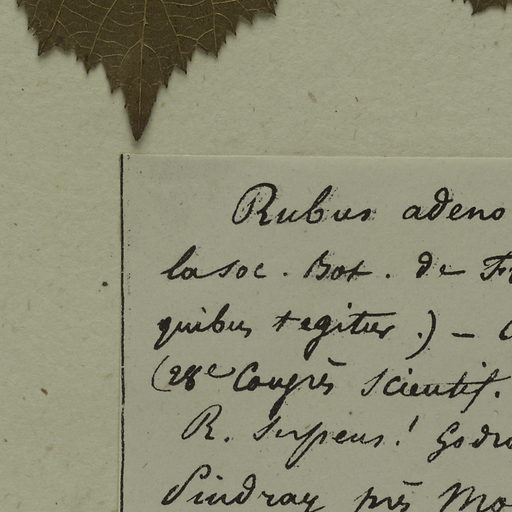 Rubus adeno
la soc. Bot. de Fr
quibus tegitur.) —
(28e Congrès Scientif.
R. Serpens! Godro
Pindray près Mo